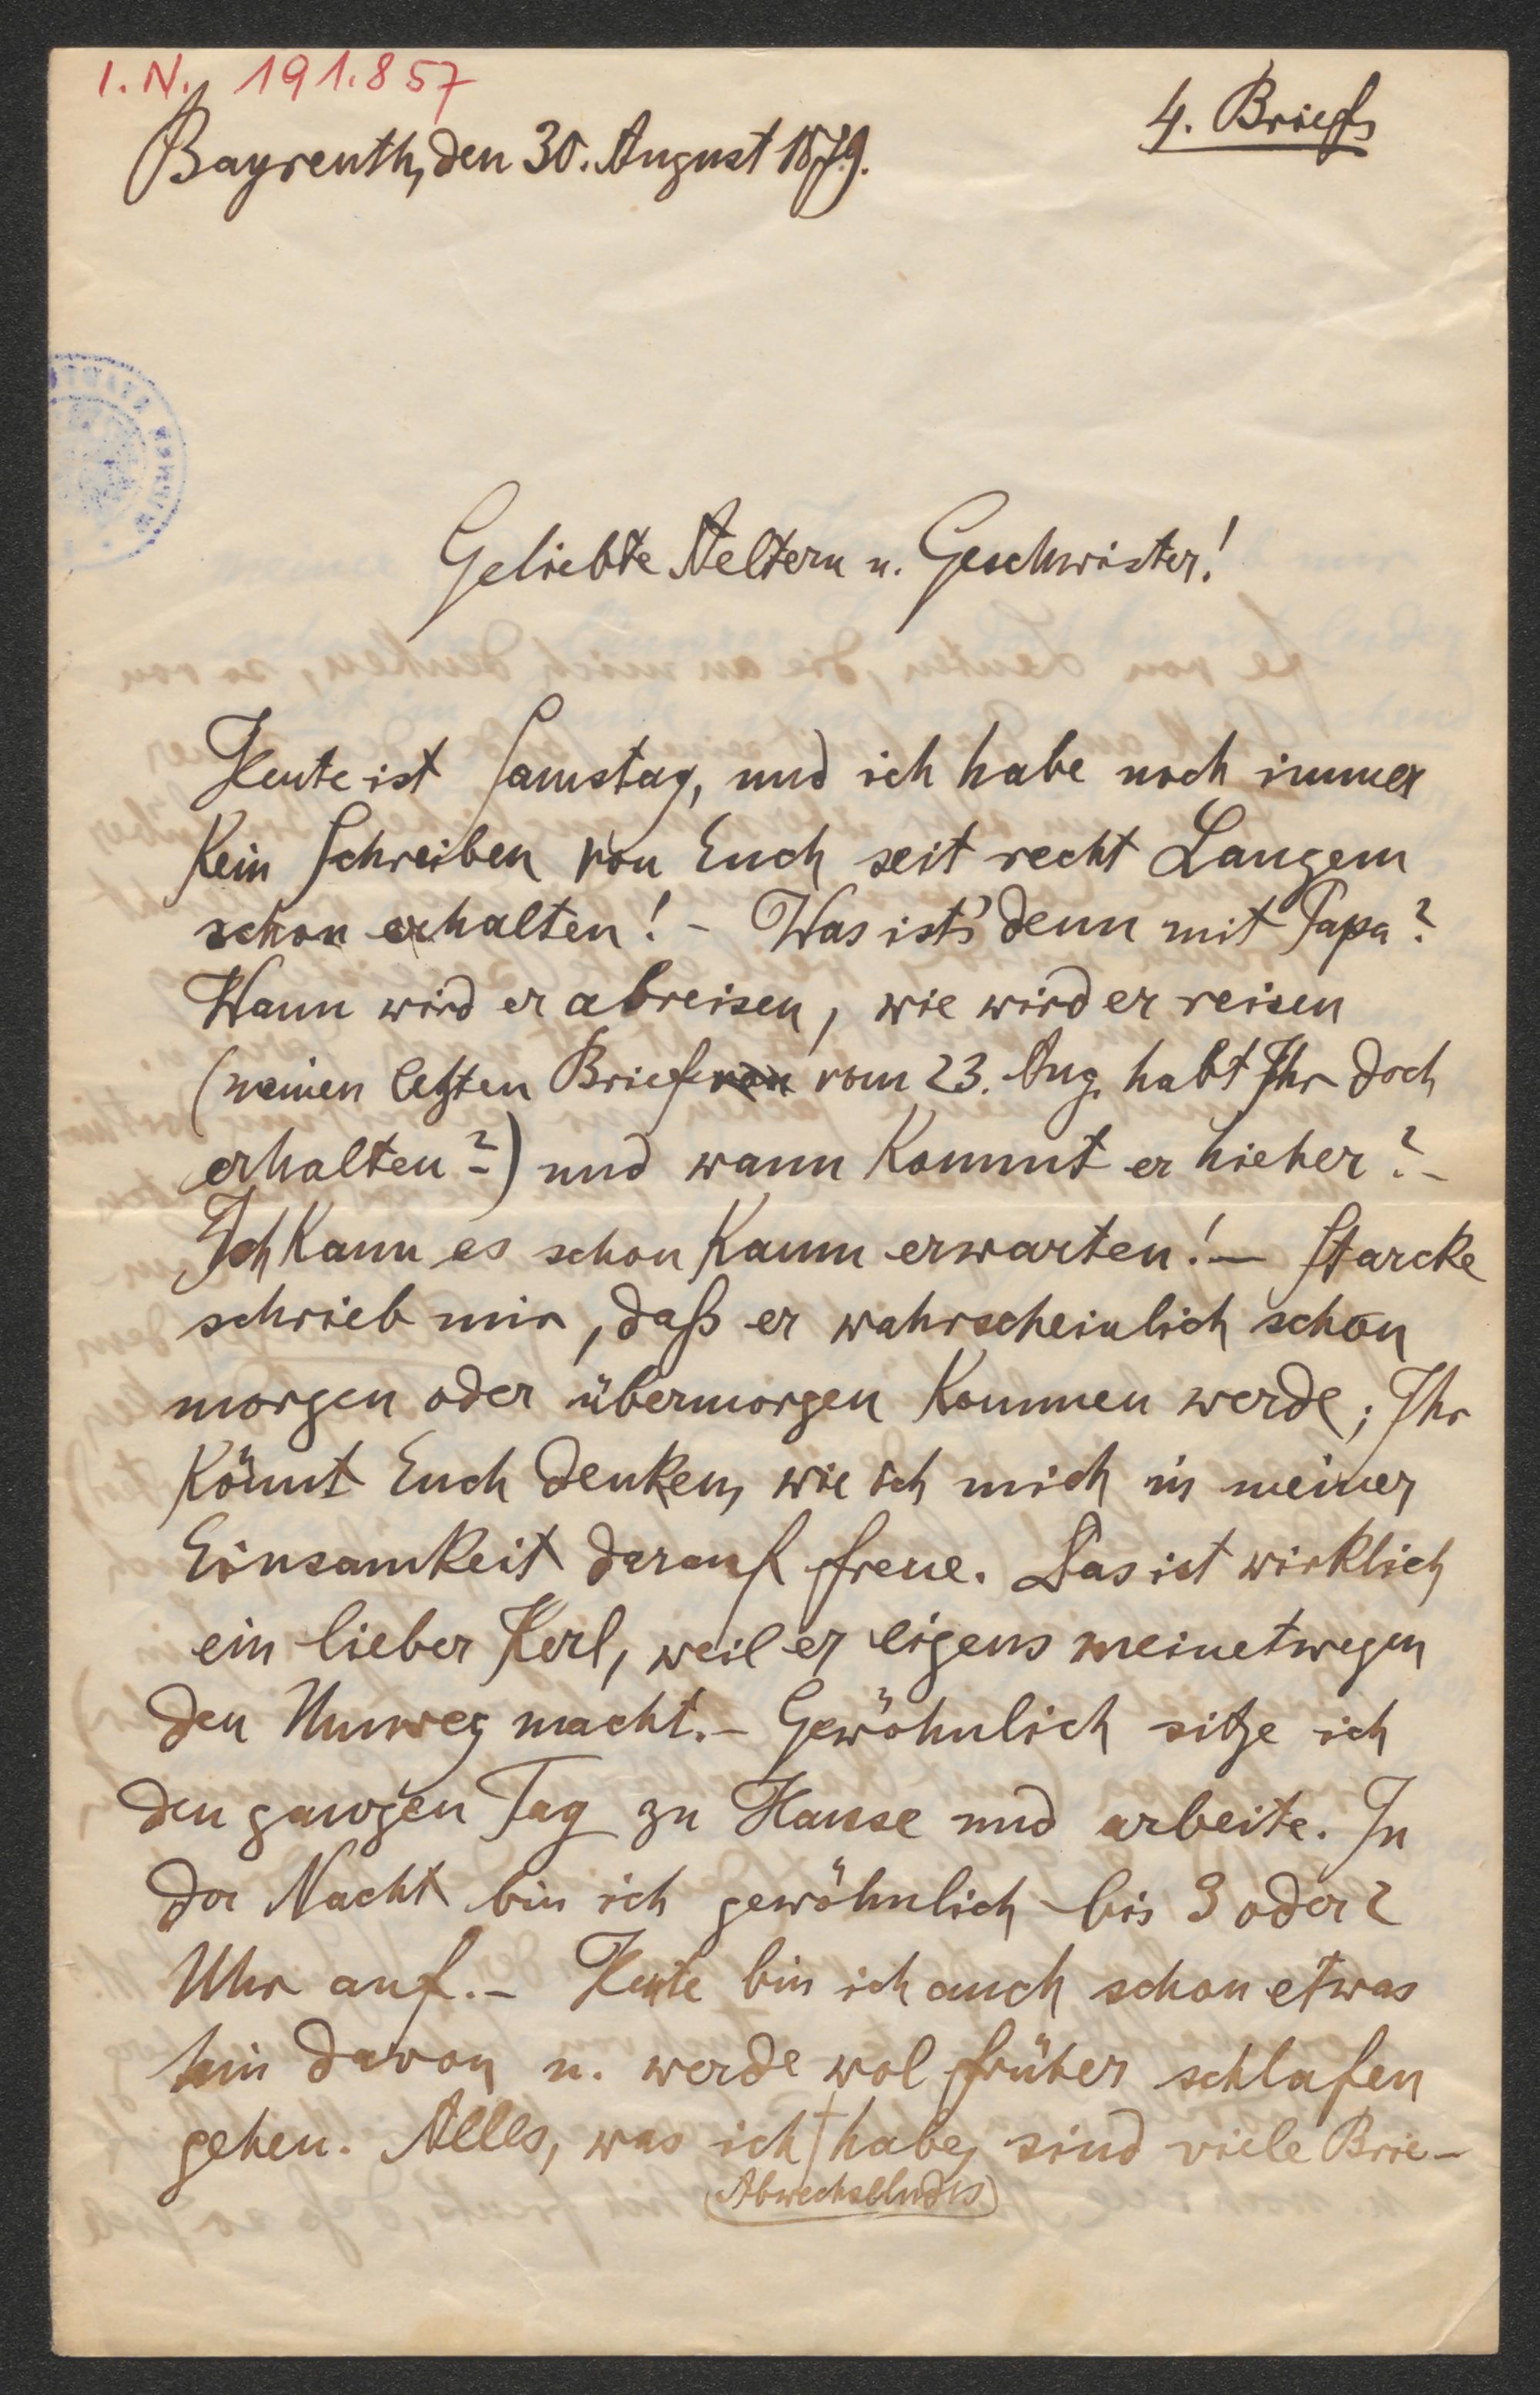 I. N. 191.857
4. Brief
Bayreuth, den 30. August 1879.
Geliebte Aeltern u. Geschwister!
Heute ist Samstag, und ich habe noch immer
kein Schreiben von Euch seit recht Langem
schon erhalten! – Was ist's denn mit Papa?
Wann wird er abreisen, wie wird er reisen
(meinen letzten Brief von vom 23. Aug. habt Ihr doch
erhalten?–) und wann kommt er hieher? –
Ich kann es schon kaum erwarten! – Starcke
schrieb mir, daß er wahrscheinlich schon
morgen oder übermorgen kommen werde; Ihr
könnt Euch denken, wie ich mich in meiner
Einsamkeit darauf freue. Das ist wirklich
ein lieber Kerl, weil er eigens meinetwegen
den Umweg macht. – Gewöhnlich sitze ich
den ganzen Tag zu Hause und arbeite. In
der Nacht bin ich gewöhnlich bis 3 oder 2
Uhr auf. – Heute bin ich auch schon etwas
hin davon u. werde wol früher schlafen
gehen. Alles, was ich † habe, sind viele Brie-
(Abwechselndes)